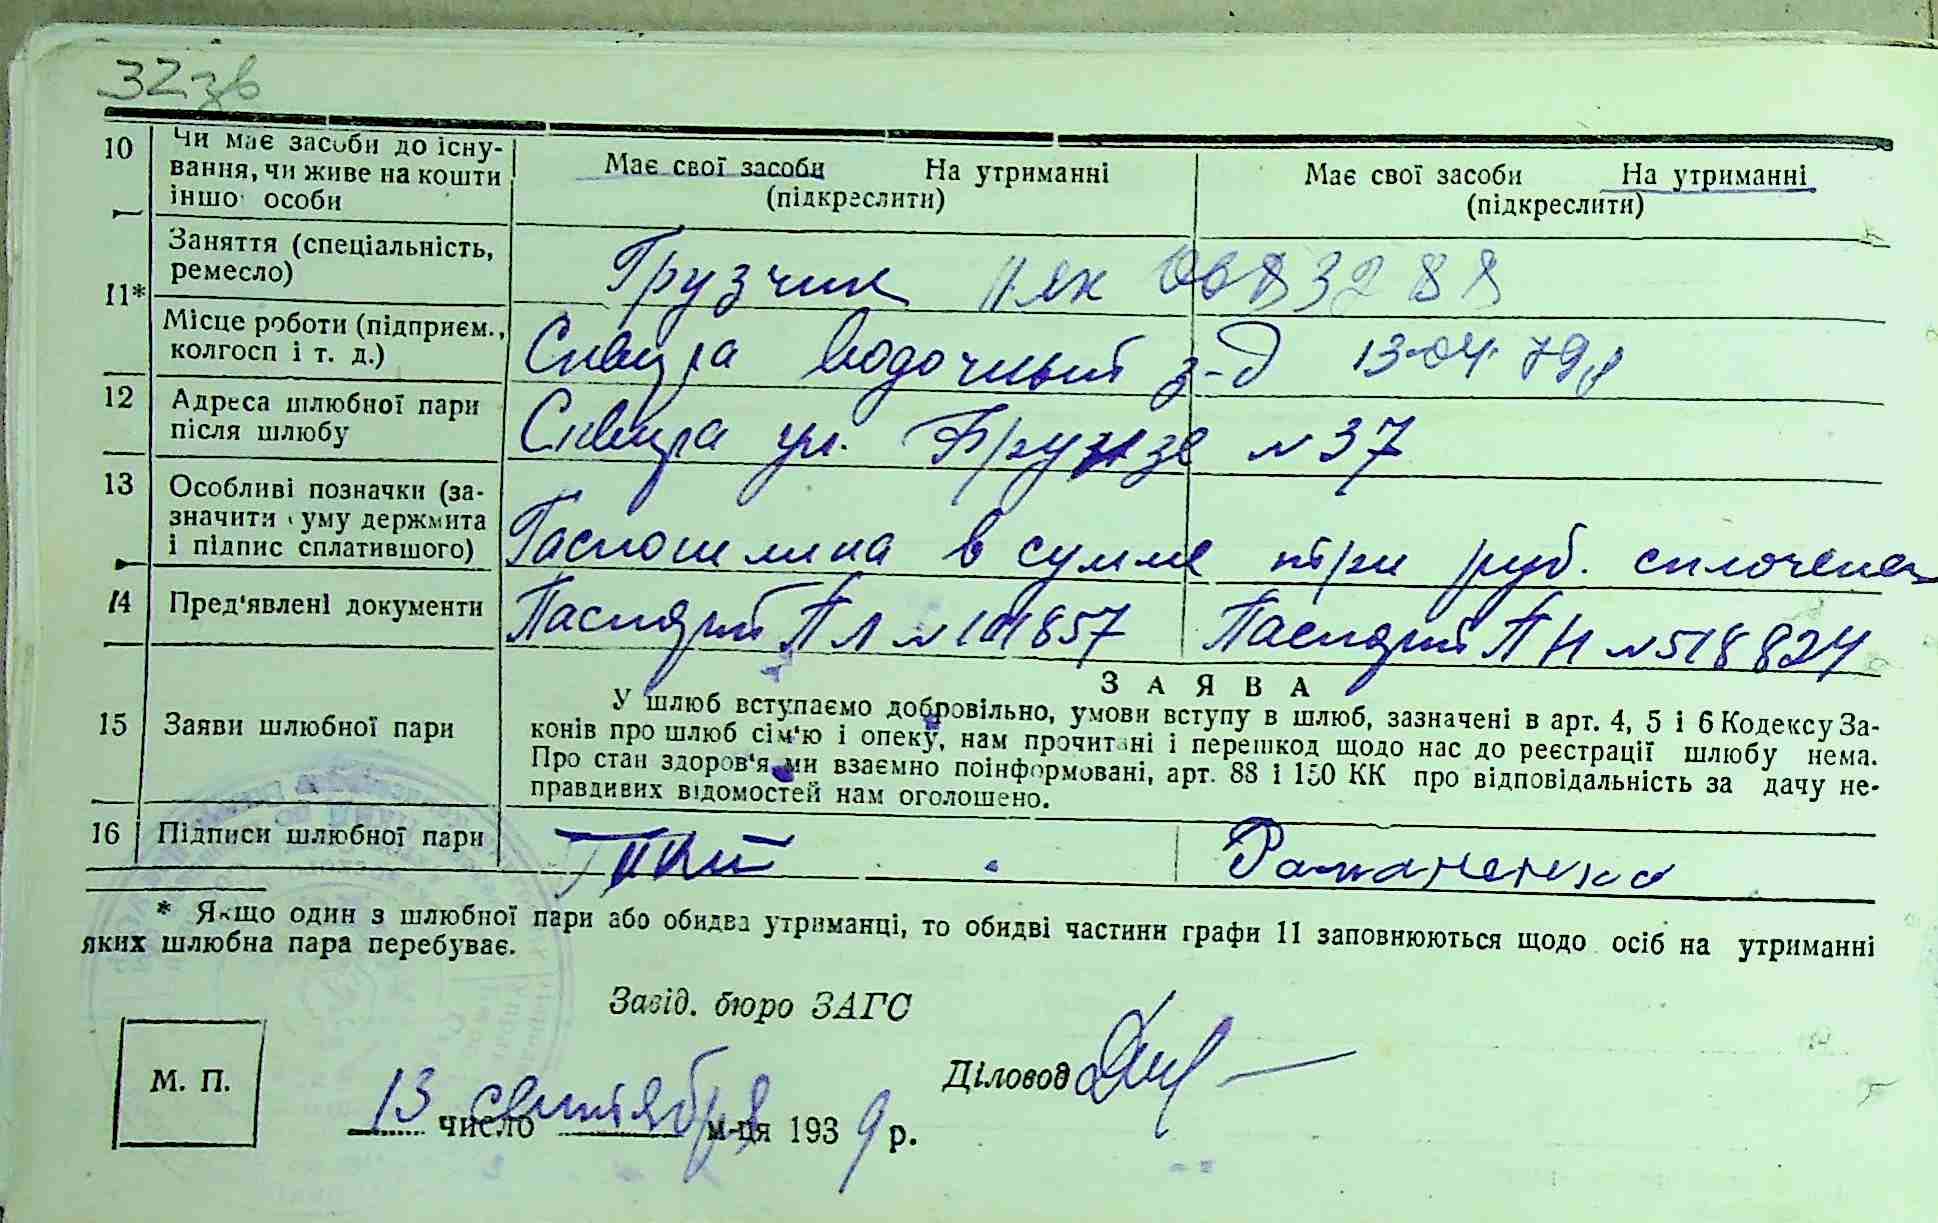 32зв
10 Чи має засоби до існу-
вання, чи живе на кошти
іншо особи
Має свої засоби На утриманні
(підкреслити)
Має свої засоби На утриманні
(підкреслити)
11*
Заняття (спеціальність,
ремесло)
Грузчик II ЯК 083288
Місце роботи (підприєм.,
колгосп і т. д.)
Сквира водочный з-д 13-04-79р
12 Адреса шлюбної пари
після шлюбу
Сквира ул. Фрунзе №37
13 Особливі позначки (за-
значити суму держмита
і підпис сплатившого)
Госпошлина в сумме три руб. сплочена
14 Пред'явлені документи
Паспорт АЛ №101857 Паспорт АН №518824
15 Заяви шлюбної пари
ЗАЯВА
У шлюб вступаємо добровільно, умови вступу в шлюб, зазначені в арт. 4, 5 і 6 Кодексу За-
конів про шлюб сім'ю і опеку, нам прочитані і перешкод щодо нас до реєстрації шлюбу нема.
Про стан здоров'я ми взаємно поінформовані, арт. 88 і 150 КК про відповідальність за дачу не-
правдивих відомостей нам оголошено.
16 Підписи шлюбної пари
Романенко
* Якщо один з шлюбної пари або обидва утриманці, то обидві частини графи 11 заповнюються щодо осіб на утриманні
яких шлюбна пара перебуває.
Завід. бюро ЗАГС
Діловод
М. П.
13 число сентября м-ця 1939 р.